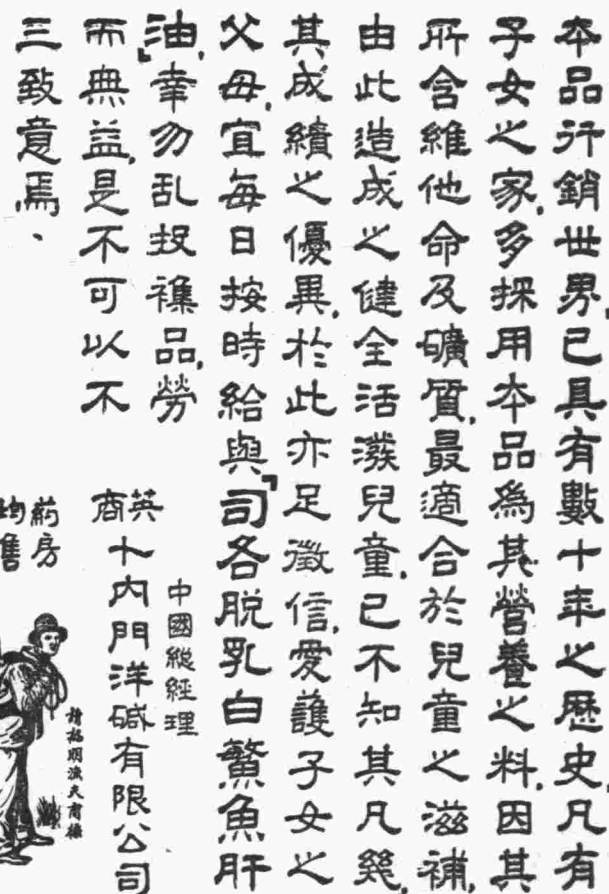 夲品行銷世界,已具有數十年之歷史,凡有
子女之家,多採用夲品為其營養之料,因其
所含維他命及礦質,最適合於兒童之滋補,
由此造成之健全活潑兒童,已不知其凡幾,
其成績之優異,於此亦足徵信,愛護子女之
父母,宜每日按時給與「司各脫乳白鰵魚肝
油」,幸勿乱投襍品,勞
而無益,是不可以不
三致意焉、
中國總經理
英商卜內門洋碱有限公司
葯房
均售
請認明漁夫商標